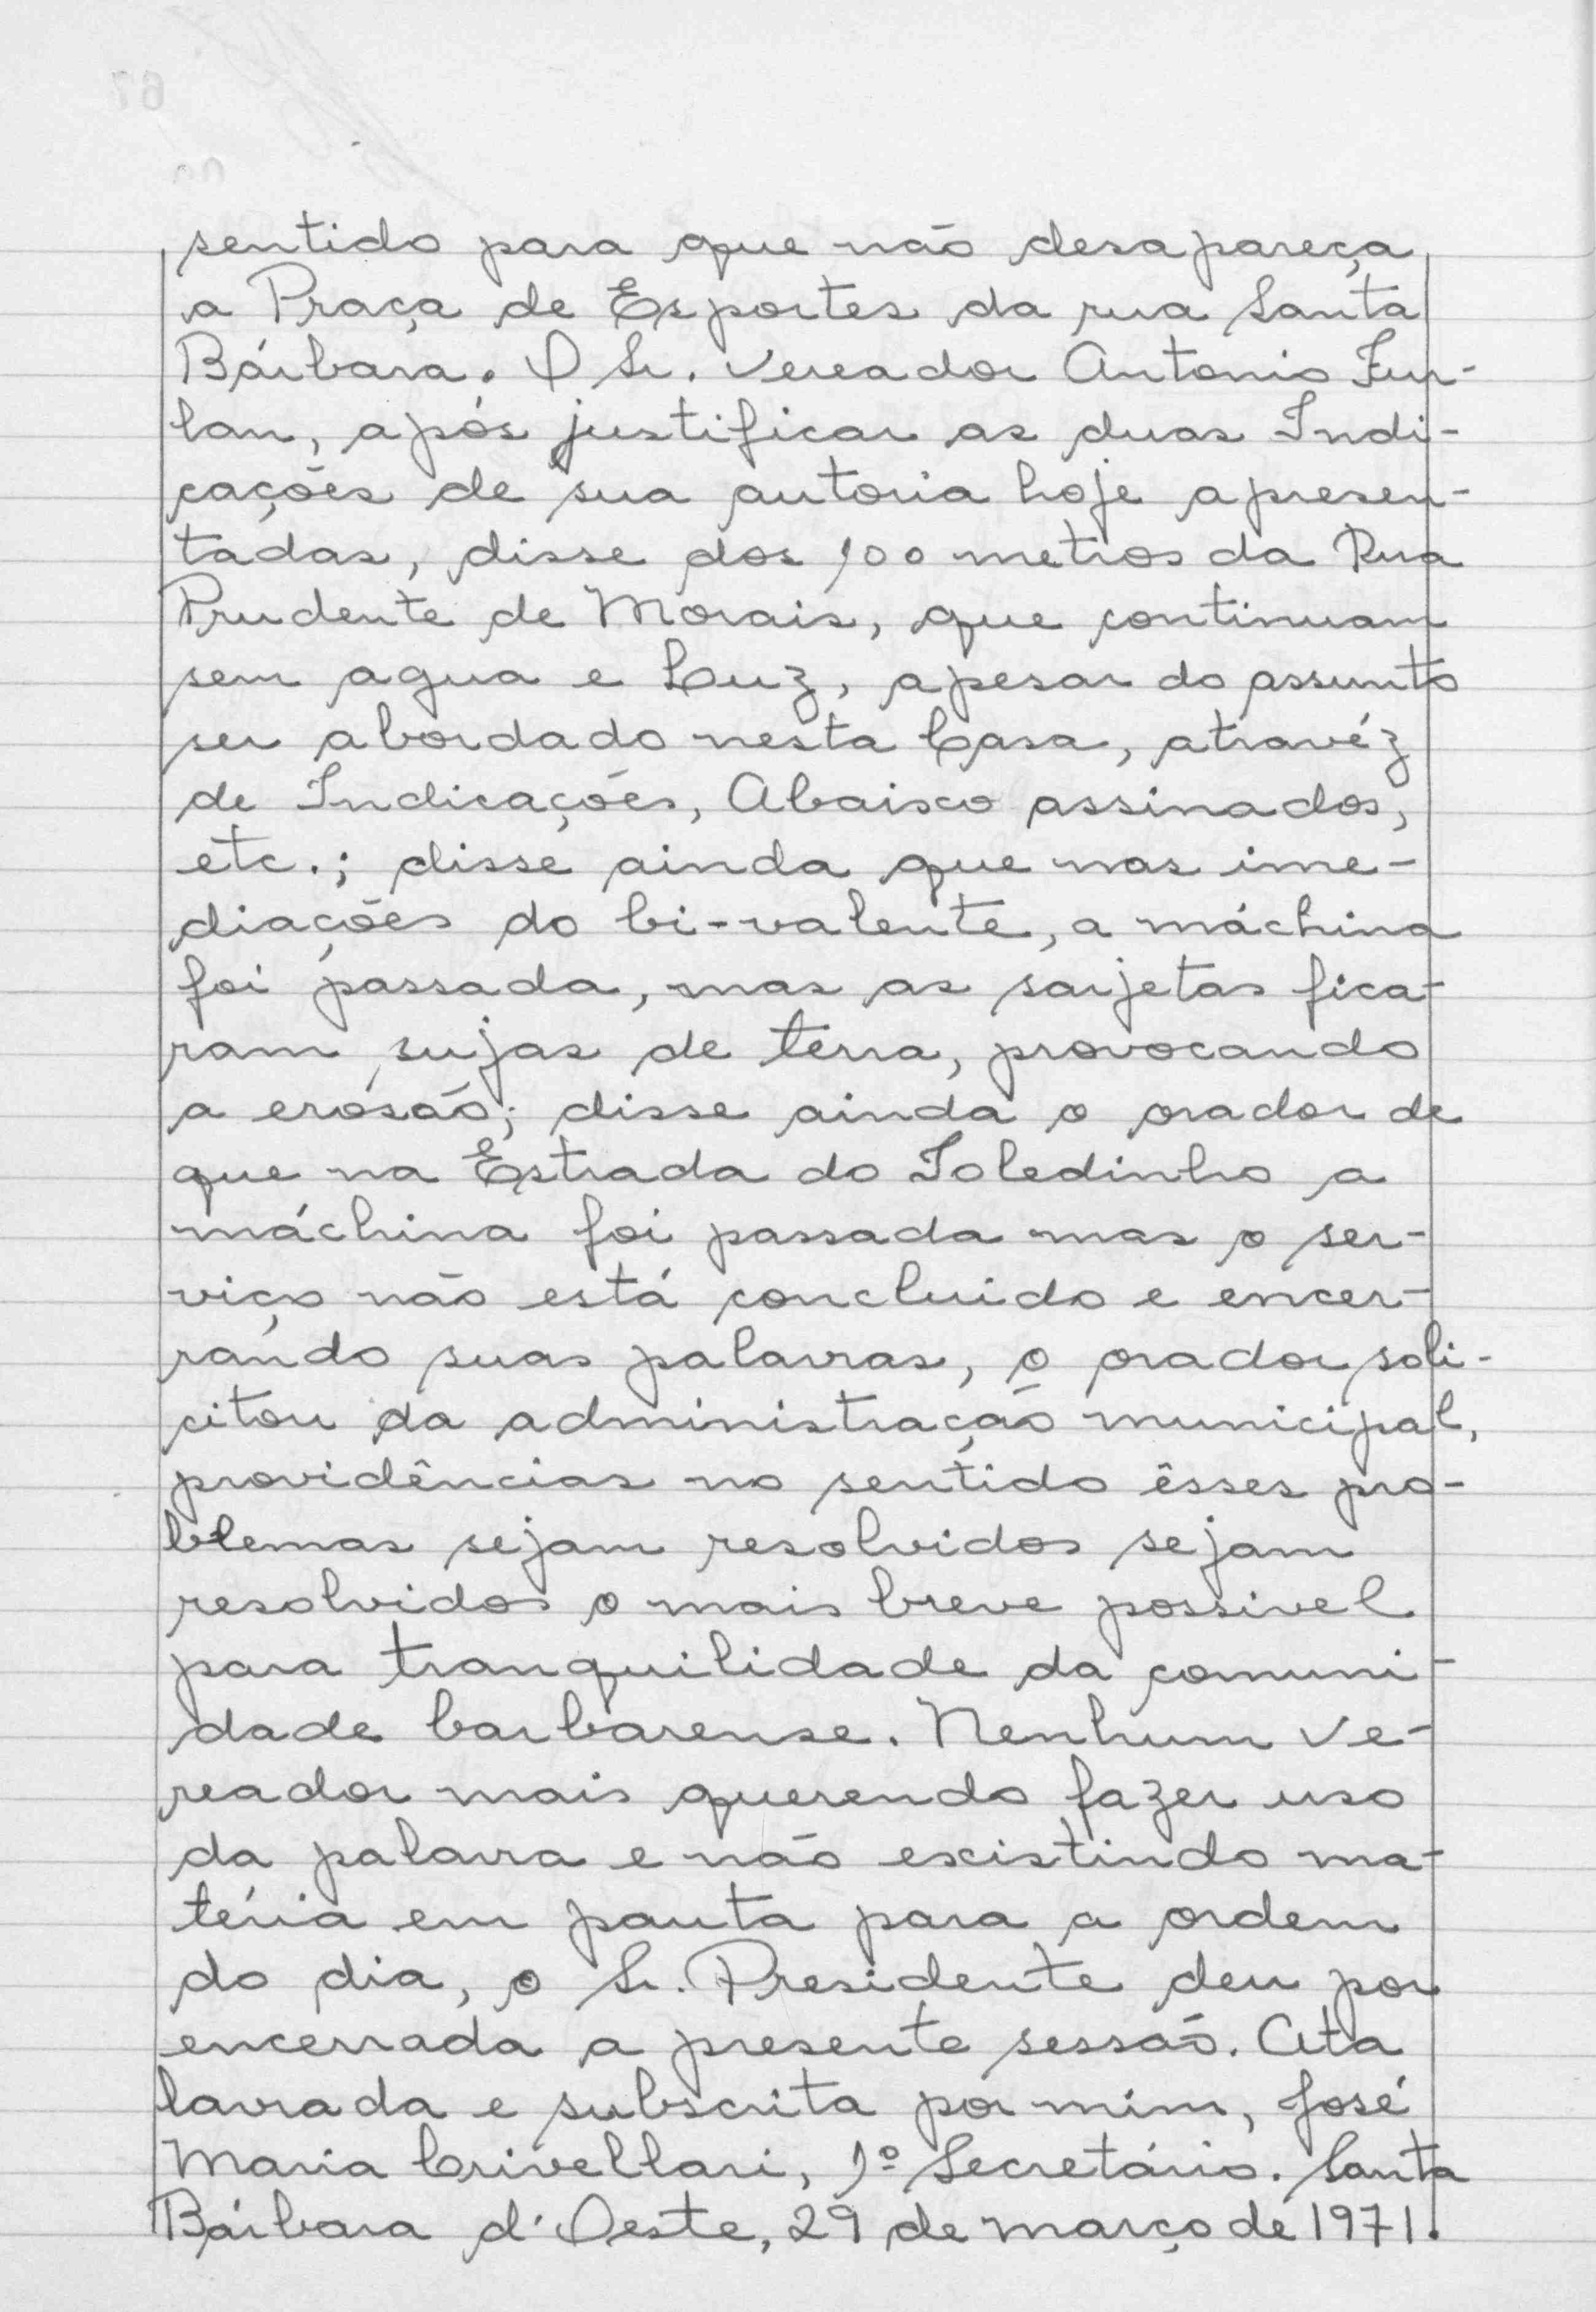 sentido para que não desapareça
a Praça de Esportes da rua Santa
Bárbara. O Sr. Vereador Antonio Fur-
lan, após justificar as duas Indi-
cações de sua autoria hoje apresen-
tadas, disse dos 100 metros da Rua
Prudente de Morais, que continuam
sem agua e Luz, apesar do assunto
ser abordado nesta Casa, atravéz
de Indicações, Abaixo assinados,
etc.; disse ainda que nas ime-
diações do bi-valente, a máchina
foi passada, mas as sarjetas fica-
ram sujas de terra, provocando
a erosão; disse ainda o orador de
que na Estrada do Toledinho a
máchina foi passada mas o ser-
viço não está concluido e encer-
rando suas palavras, o orador soli-
citou da administração municipal,
providências no sentido êsses pro-
blemas sejam resolvidos sejam
resolvidos o mais breve possivel
para tranquilidade da comuni-
dade barbarense. Nenhum Ve-
reador mais querendo fazer uso
da palavra e não existindo ma-
téria em pauta para a ordem
do dia, o Sr. Presidente deu por
encerrada a presente sessão. Ata
lavrada e subscrita por mim, José
Maria Crivellari, 1º Secretário. Santa
Bárbara d'Oeste, 29 de março de 1971.